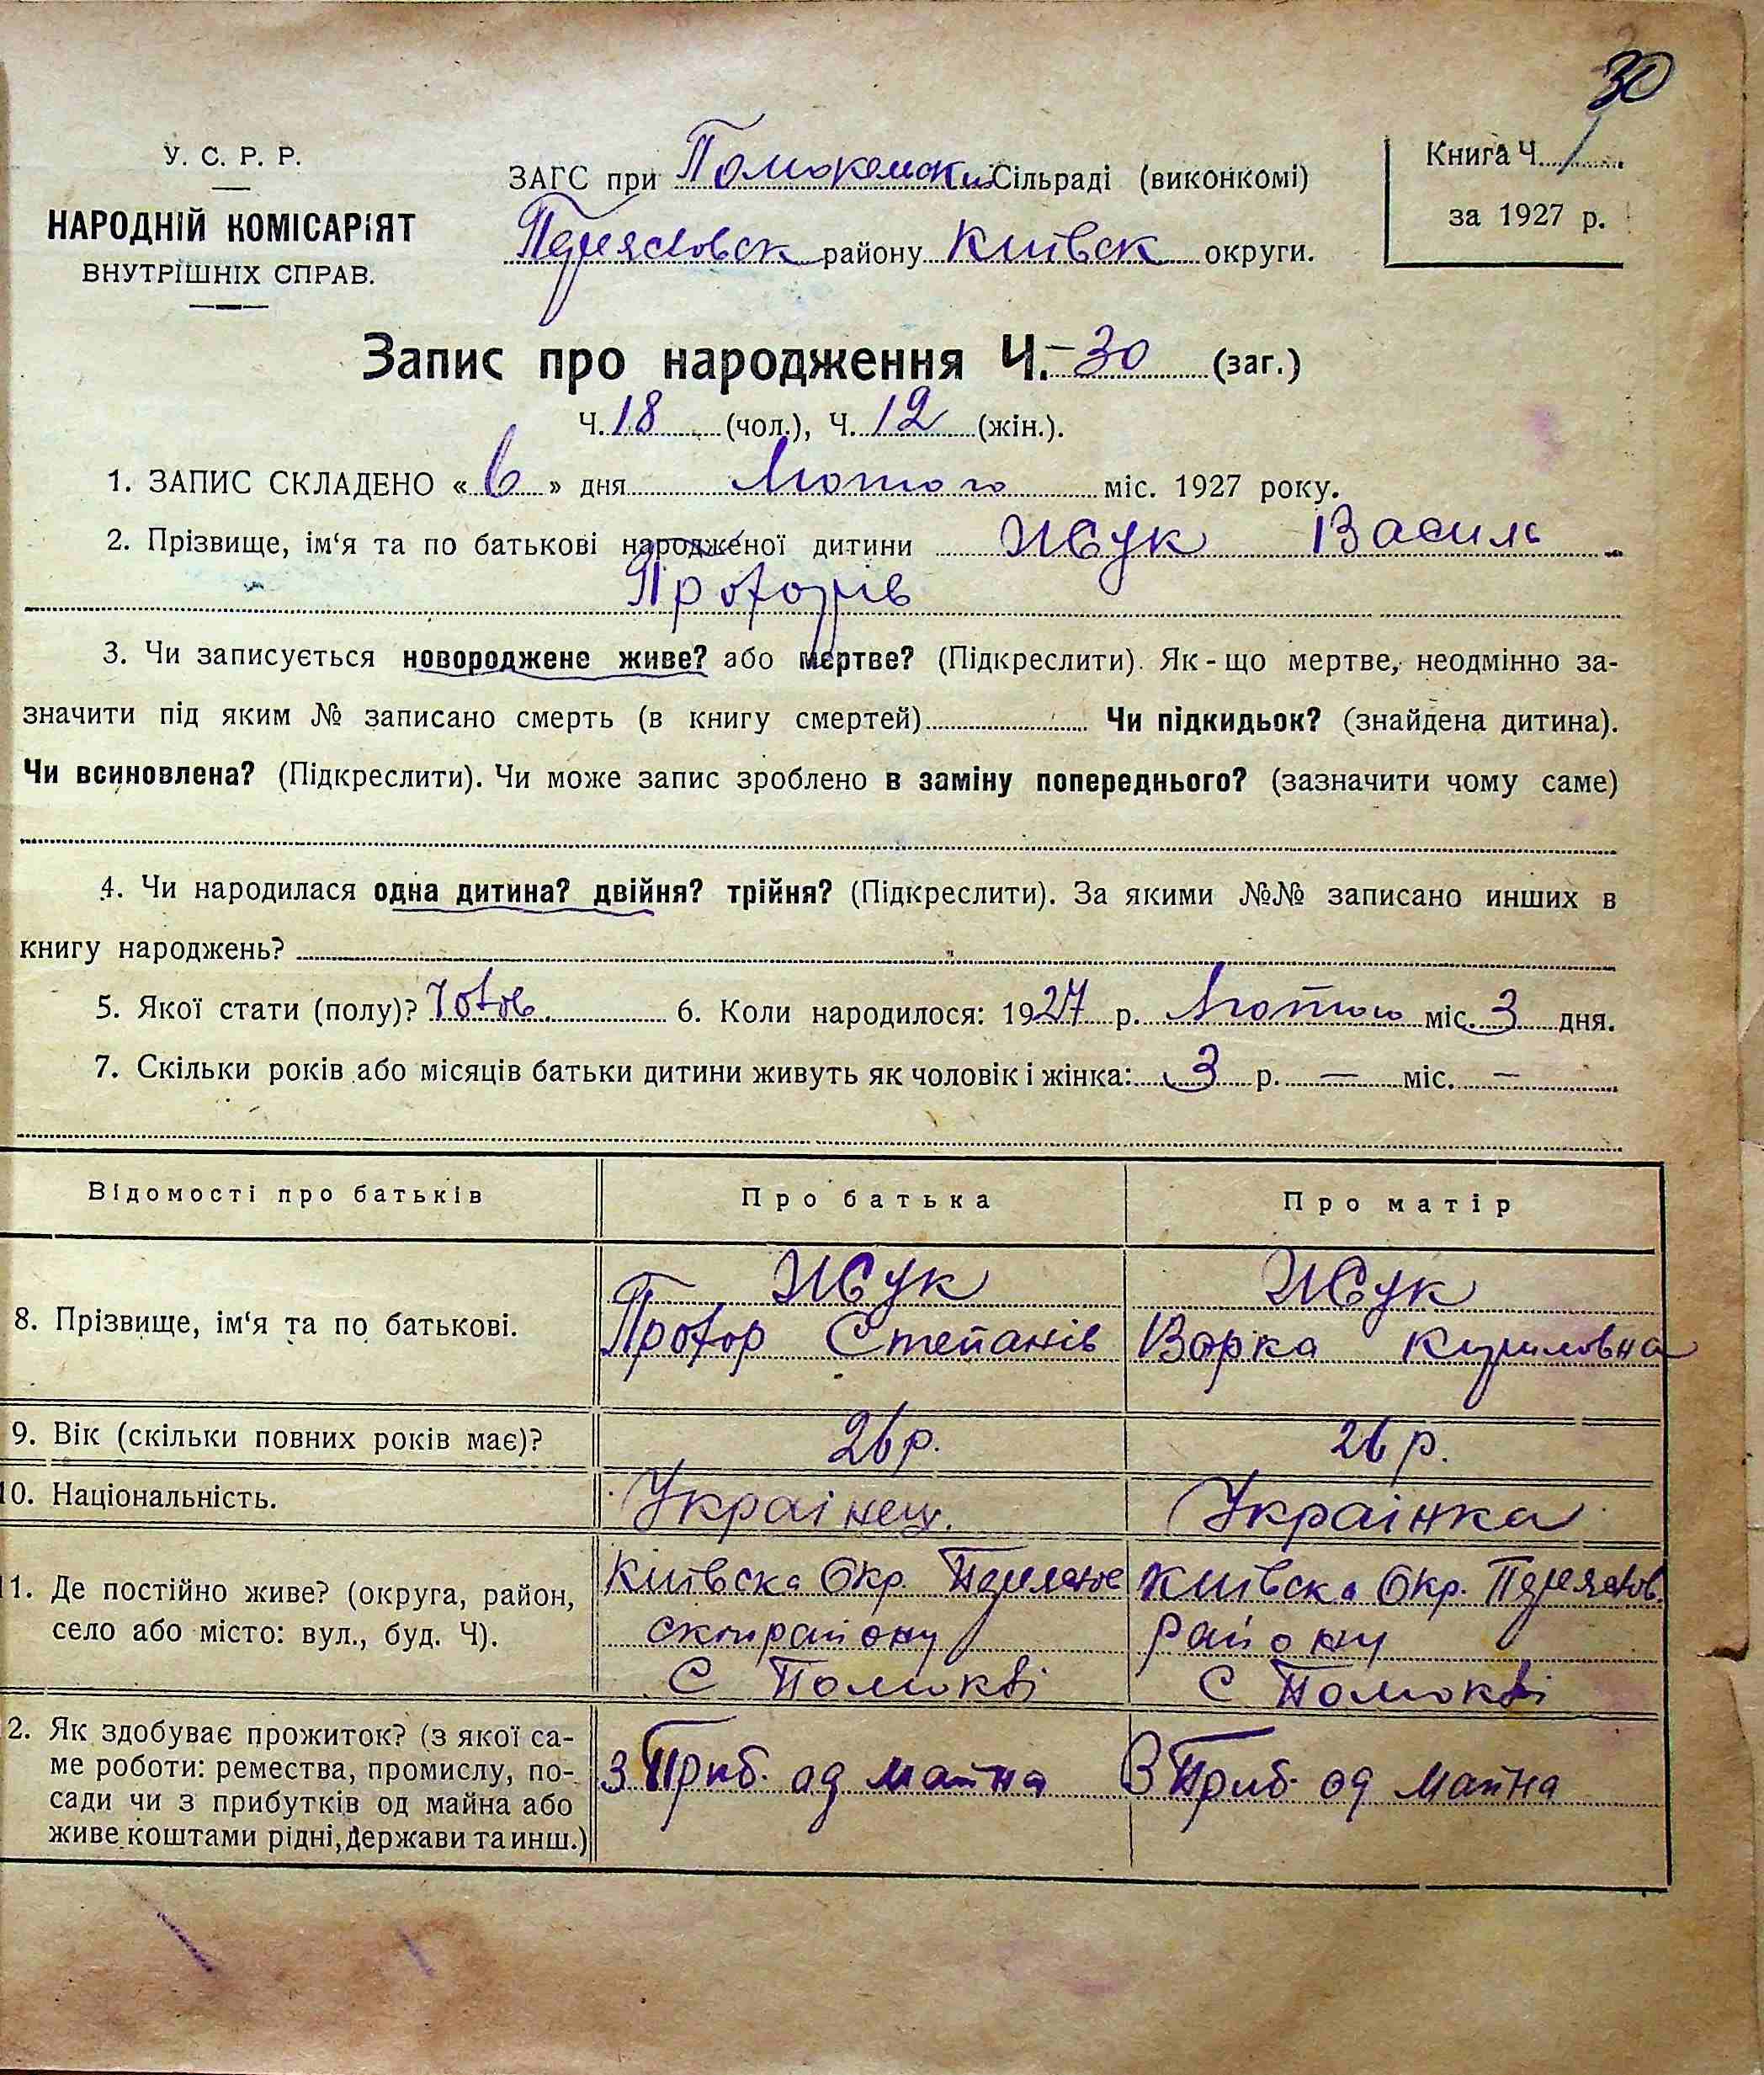 30
У. С. Р. Р.
НАРОДНІЙ КОМІСАРІЯТ
ВНУТРІШНІХ СПРАВ.
ЗАГС при Помокемски Сільраді (виконкомі)
Переясловск району Київск округи.
Книга Ч. 1
за 1927 р.
Запис про народження Ч. 30 (заг.)
Ч. 18 (чол.), Ч. 12 (жін.).
1. ЗАПИС СКЛАДЕНО « 6 » дня Лютого міс. 1927 року.
2. Прізвище, ім'я та по батькові народженої дитини Жук Василь
Прохорів
3. Чи записується новороджене живе? або мертве? (Підкреслити). Як-що мертве, неодмінно за-
значити під яким № записано смерть (в книгу смертей) Чи підкидьок? (знайдена дитина).
Чи всиновлена? (Підкреслити). Чи може запис зроблено в заміну попереднього? (зазначити чому саме)
4. Чи народилася одна дитина? двійня? трійня? (Підкреслити). За якими №№ записано инших в
книгу народжень?
5. Якої стати (полу)? Чолов. 6. Коли народилося: 1927 р. Лютого міс. 3 дня.
7. Скільки років або місяців батьки дитини живуть як чоловік і жінка: 3 р. — міс. —
Відомості про батьків Про батька Про матір
8. Прізвище, ім'я та по батькові.
Жук
Прохор Степанів
Жук
Варка Кириловна
9. Вік (скільки повних років має)? 26 р. 26 р.
10. Національність. Украінец. Украінка
11. Де постійно живе? (округа, район,
село або місто: вул., буд. Ч).
Київска Окр.
району
С Помокві
Київска Окр. Переяслов.
району
С Помокві
2. Як здобуває прожиток? (з якої са-
ме роботи: ремества, промислу, по-
сади чи з прибутків од майна або
живе коштами рідні, Держави та инш.)
З Приб. од майна
З Приб. од майна